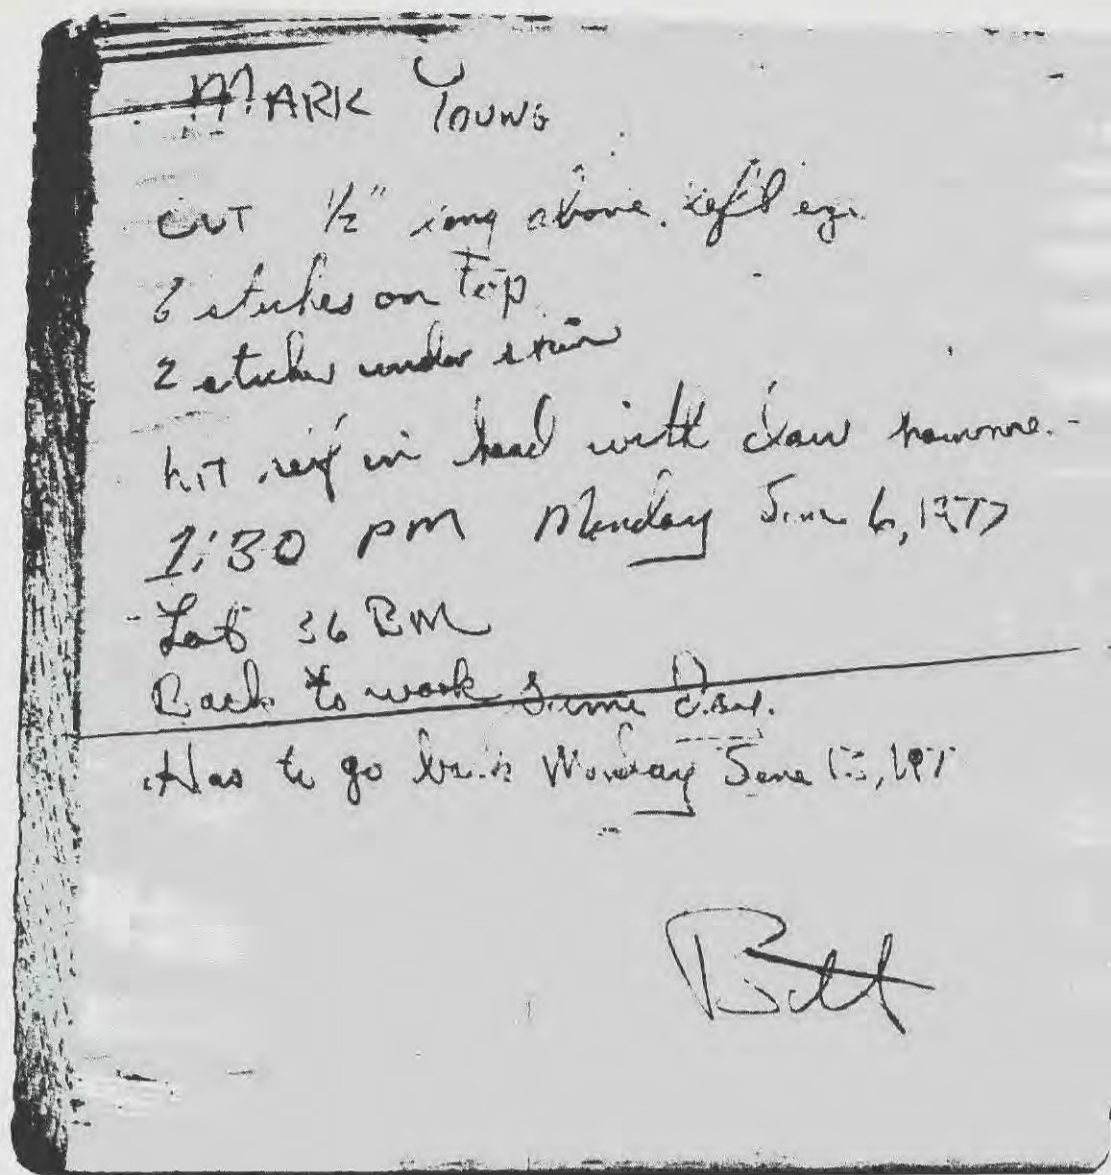 MARK YOUNG
CUT 1/2" long above left eye
stiches on Top
2 stiches under skin
hit self in head with claw hammer
1:30 PM Monday June 6, 1977
Lot 36 BM
Back to work same Day.
Has to go back Monday June 13, 197
Bill